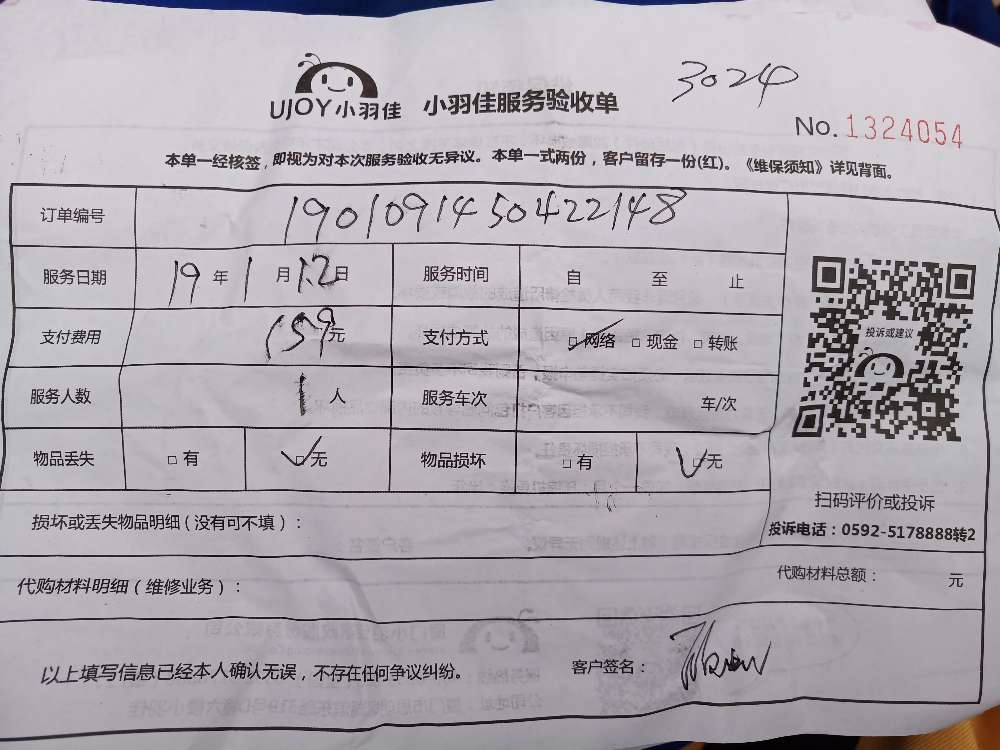 3024
UJOY小羽佳 小羽佳服务验收单
No. 1324054
本单一经核签，即视为对本次服务验收无异议。本单一式两份，客户留存一份(红)。《维保须知》详见背面。
订单编号 1901091450422148
服务日期 19年1月12日 服务时间 自 至 止
支付费用 159元 支付方式 □网络 □现金 □转账
投诉或建议
服务人数 1人 服务车次 车/次
物品丢失 □有 □无 物品损坏 □有 □无
扫码评价或投诉
损坏或丢失物品明细(没有可不填)：
投诉电话：0592-5178888转2
代购材料明细(维修业务)： 代购材料总额： 元
以上填写信息已经本人确认无误，不存在任何争议纠纷。 客户签名：